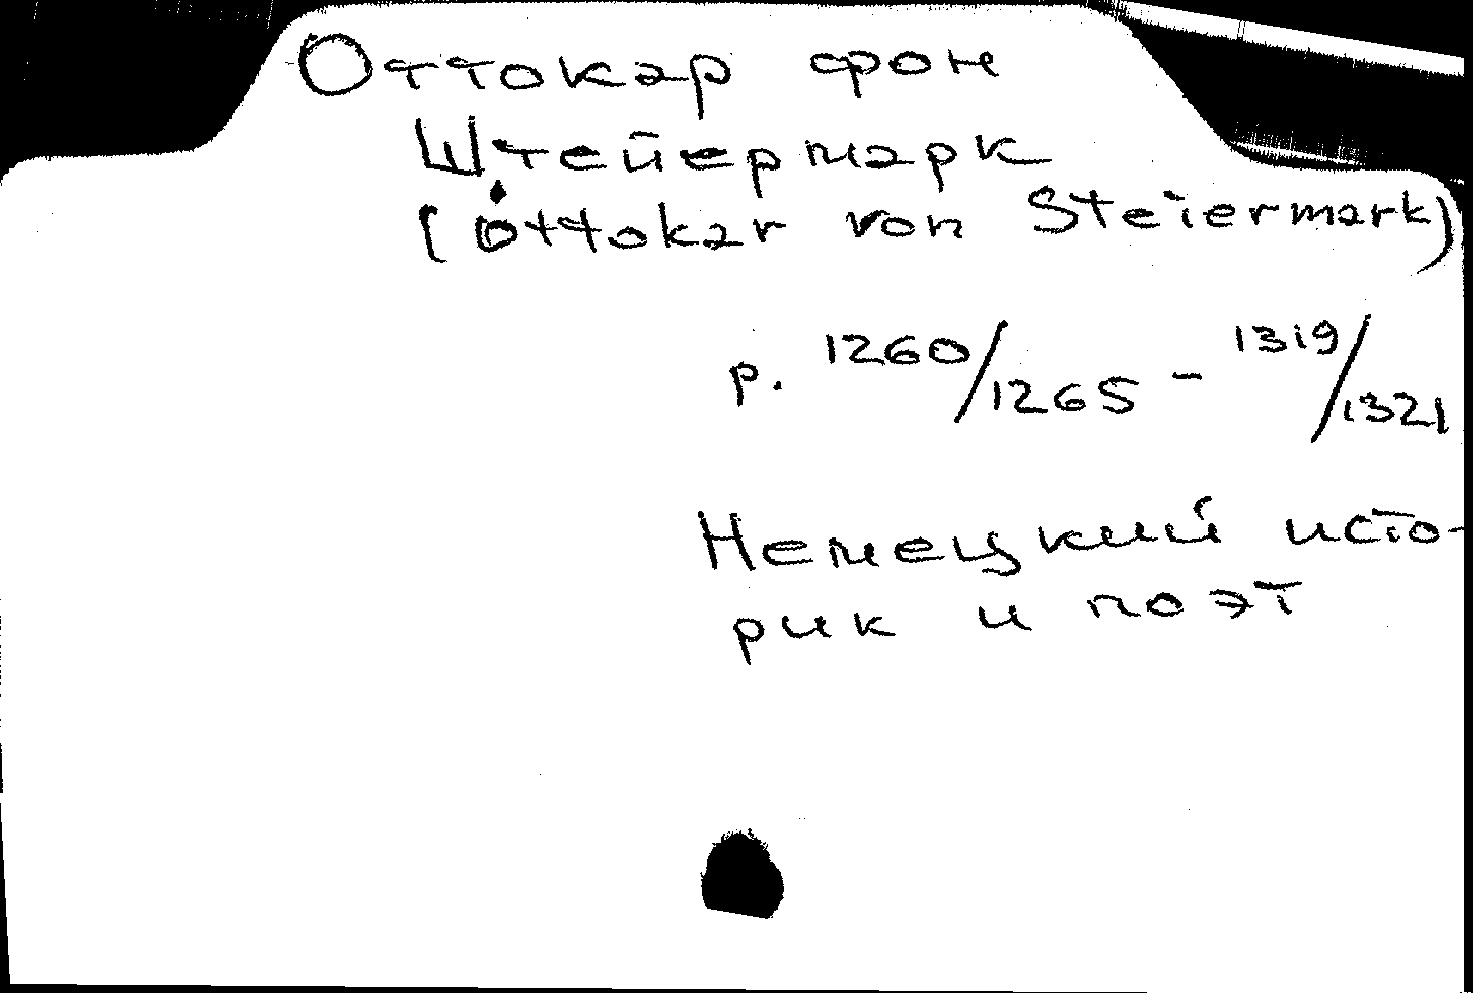 Оттокар фон
Штейермарк
(Ottokar von Steiermark)
р. 1260/1265 - 1319/1321
Немецкий исто-
рик и поэт